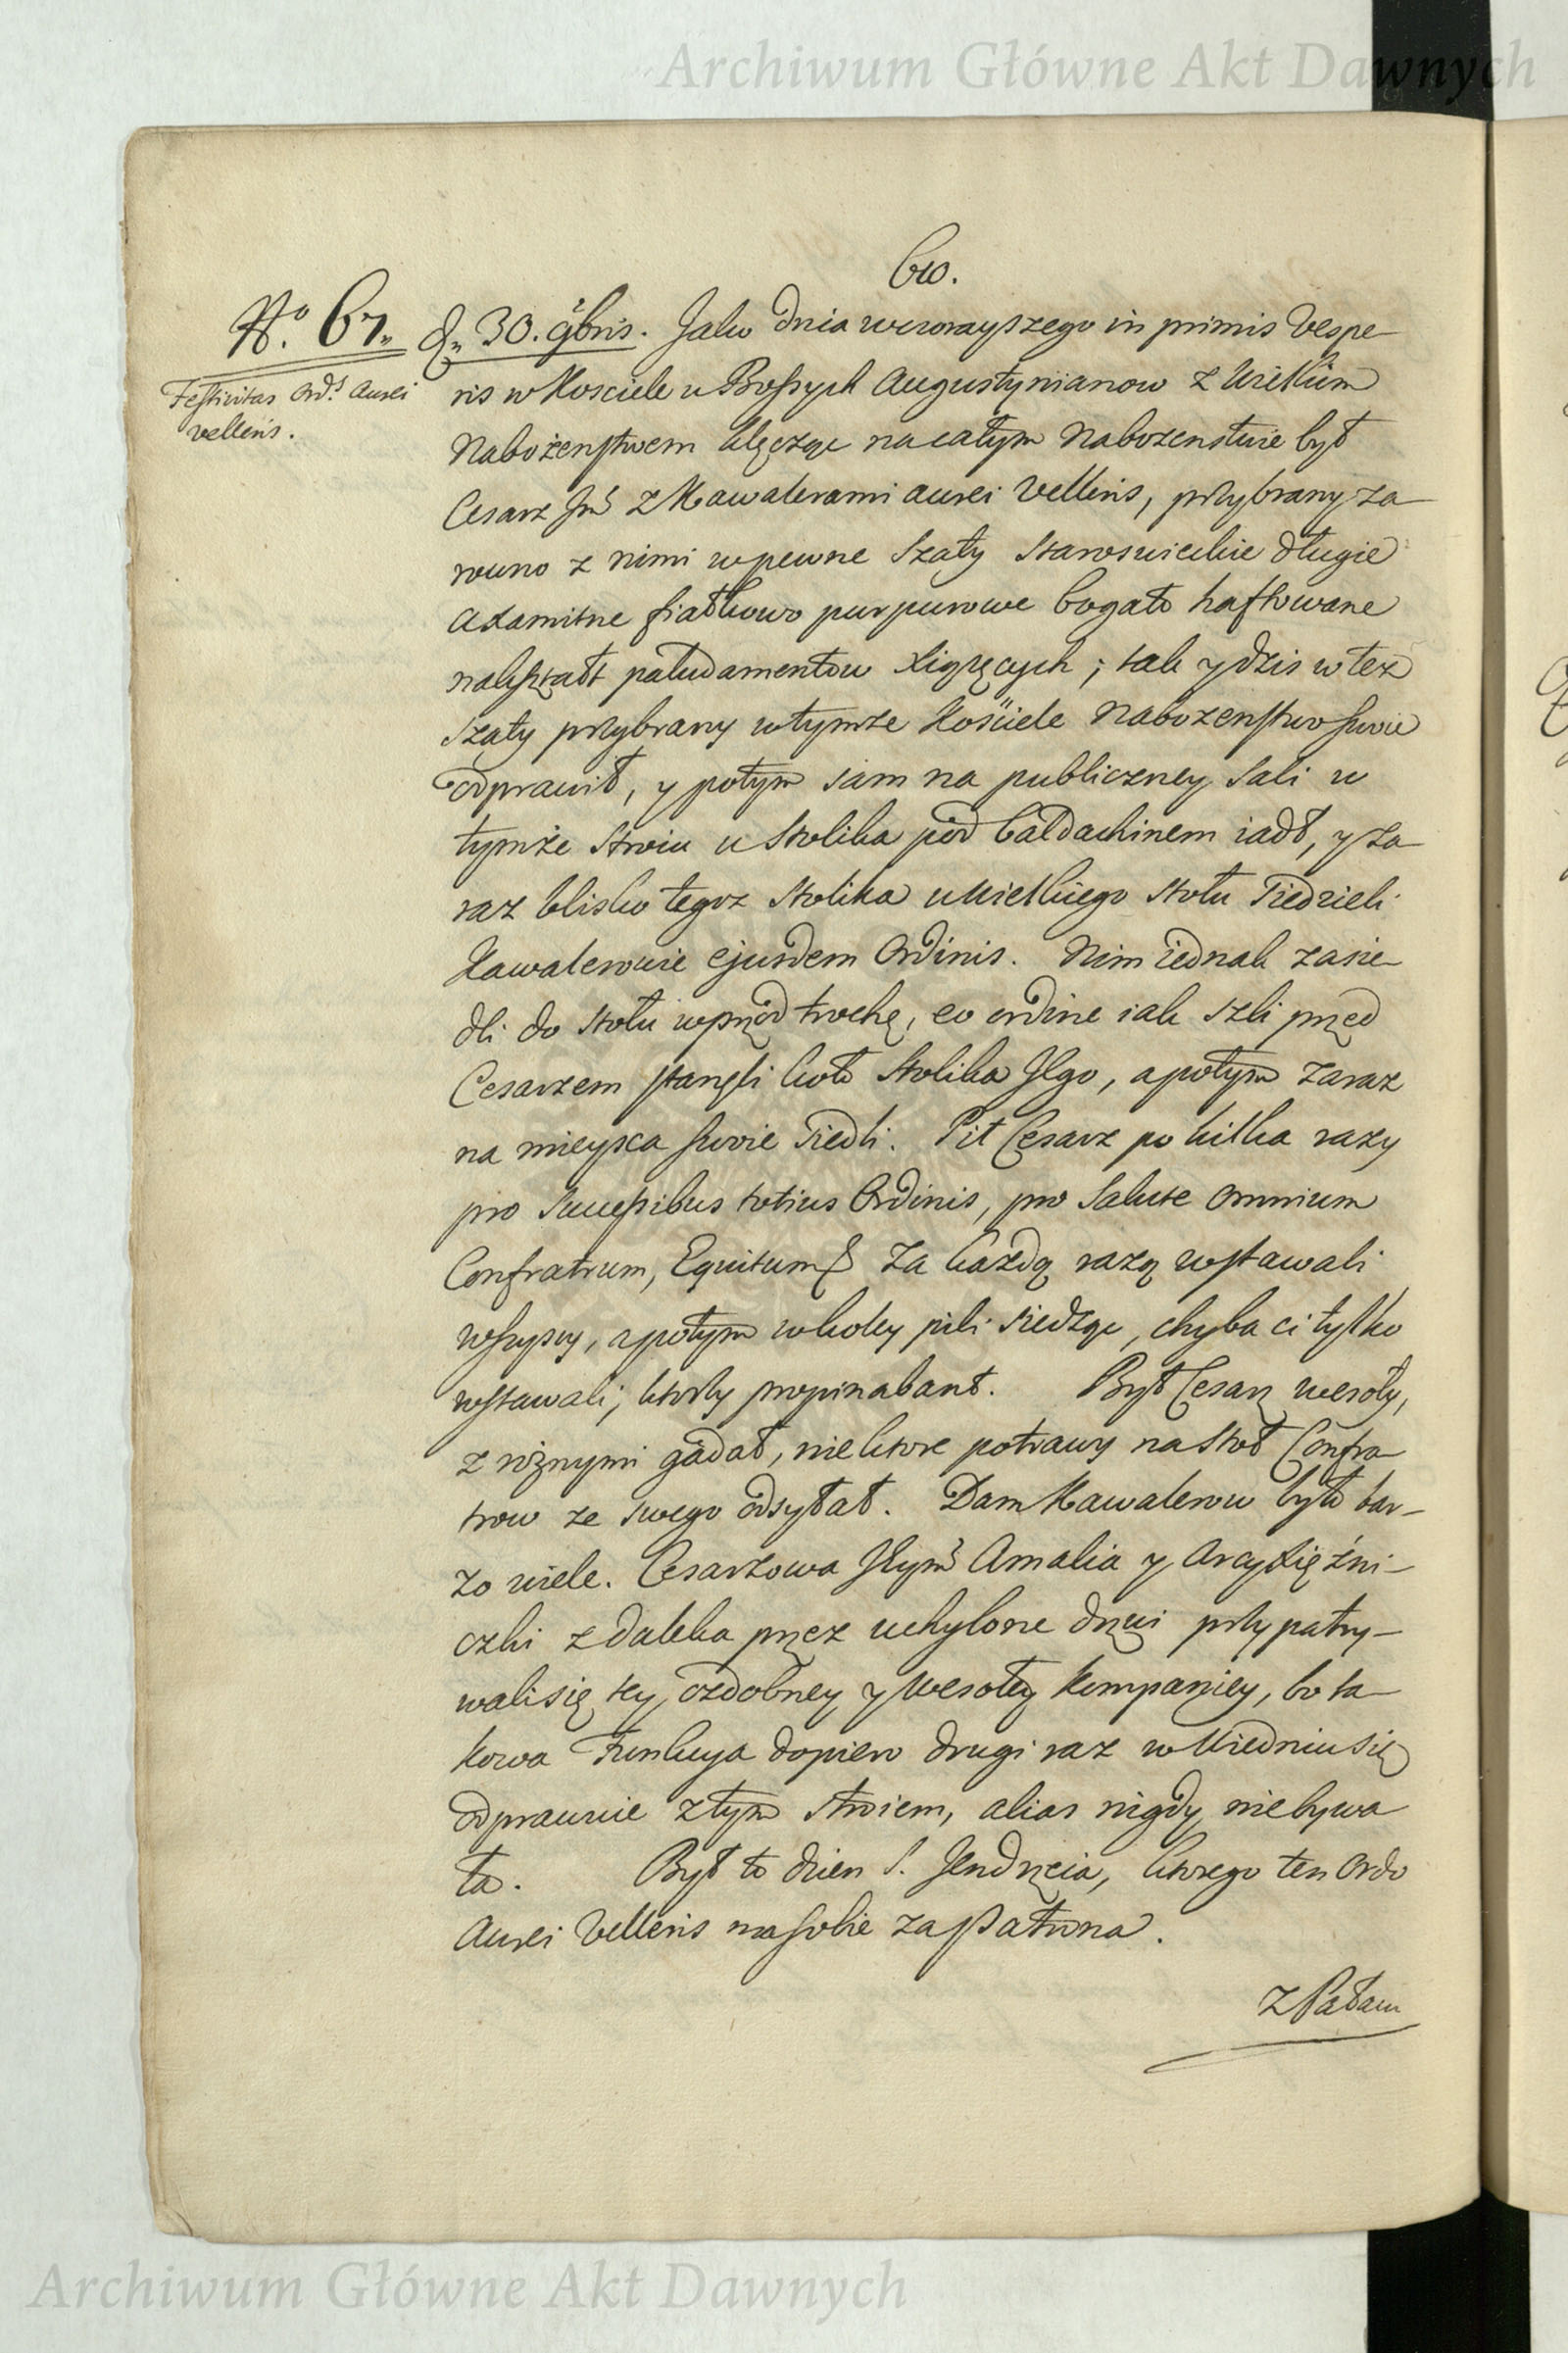 Archiwum Główne Akt Dawnych
60.
No. 67.
Festivitas Ord.s Aurei
velleris.
D. 30. 9bris. Jako dnia wczorayszego in primis Vespe-
ris w Kosciele u Bossych Augustynianow z Wielkim
Nabożenstwem klęcząc na całym Nabozenstwie był
Cesarz Jmć z Kawalerami aurei Velleris, przybrany za
rowno z nimi w pewne Szaty Staroswieckie długie
axamitne fiałkowo purpurowe bogato haftowane
nakształt paludamentow Xiążęcych; tak y dzis w tez
Szaty przybrany w tymze Kościele Nabozenstwo swoie
odprawił, y potym sam na publiczney Sali w
tymże Stroiu u Stolika pod baldachinem iadł, y za
raz blisko tegoz Stolika u Wielkiego Stołu siedzieli
Kawalerowie ejusdem Ordinis. Nim iednak zasie-
dli do Stołu wprzod trochę, eo ordine iak szli przed
Cesarzem stanęli koło Stolika Jego, a potym zaraz
na mieysca swoie siedli. Pił Cesarz po kilka razy
pro Successibus totius Ordinis, pro Salute omnium
Confratrum, Equitum & Za kazdą razą wstawali
wszyscy, a potym w koley pili siedząc, chyba ci tylko
wstawali, ktorzy propinabant. Był Cesarz wesoły,
z roznymi gadał, niektore potrawy na Stoł Confra-
trow ze swego odsyłał. Dam Kawalerow było bar-
zo wiele. Cesarzowa Jeymć Amalia y Arcyxięźni-
czki z daleka przez uchylone drzwi przypatry-
wali się tey ozdobney y wesołey kompaniey, bo ta-
kowa Funkcya dopiero drugi raz w Wiedniu się
odprawuie z tym Stroiem, alias nigdy niebywa
ła. Był to dzien S. Jendrzeia, ktorego ten Ordo
Aurei Velleris ma sobie za Patrona.
Z Pałacu
Archiwum Główne Akt Dawnych